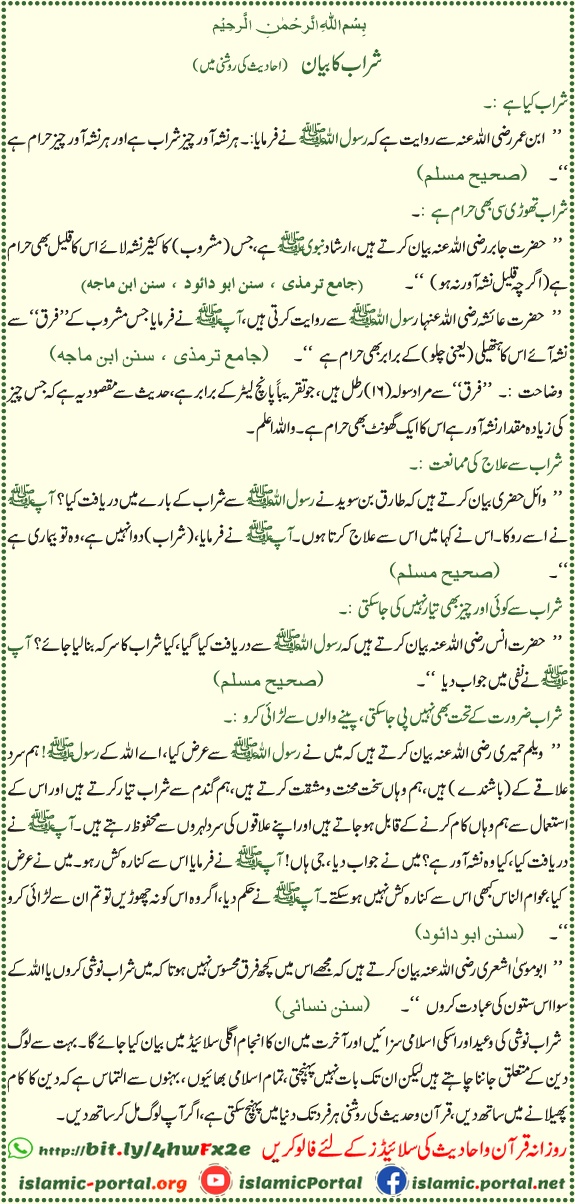 بِسْمِ اللهِ الرَّحْمٰنِ الرَّحِيْمِ
شراب کا بیان (احادیث کی روشنی میں)
شراب کیا ہے :۔
’’ ابن عمر رضی اللہ عنہ سے روایت ہے کہ رسول اللہ ﷺ نے فرمایا:۔ ہر نشہ آور چیز شراب ہے اور ہر نشہ آور چیز حرام ہے
‘‘۔ (صحیح مسلم)
شراب تھوڑی سی بھی حرام ہے :۔
’’ حضرت جابر رضی اللہ عنہ بیان کرتے ہیں، ارشاد نبوی ﷺ ہے، جس (مشروب) کا کثیر نشہ لائے اس کا قلیل بھی حرام
ہے (اگرچہ قلیل نشہ آور نہ ہو) ‘‘۔ (جامع ترمذی ، سنن ابو دائود ، سنن ابن ماجه)
’’ حضرت عائشہ رضی اللہ عنہا رسول اللہ ﷺ سے روایت کرتی ہیں، آپ ﷺ نے فرمایا جس مشروب کے ’’فرق‘‘ سے
نشہ آئے اس کا ہتھیلی (یعنی چلو) کے برابر بھی حرام ہے ‘‘۔ (جامع ترمذی ، سنن ابن ماجه)
وضاحت :۔ ’’فرق‘‘ سے مراد سولہ (۱۶) رطل ہیں، جو تقریباً پانچ لیٹر کے برابر ہے، حدیث سے مقصود یہ ہے کہ جس چیز
کی زیادہ مقدار نشہ آور ہے اس کا ایک گھونٹ بھی حرام ہے۔ واللہ اعلم ۔
شراب سے علاج کی ممانعت :۔
’’ وائل حضری بیان کرتے ہیں کہ طارق بن سوید نے رسول اللہ ﷺ سے شراب کے بارے میں دریافت کیا؟ آپ ﷺ
نے اسے روکا۔ اس نے کہا میں اس سے علاج کرتا ہوں۔ آپ ﷺ نے فرمایا، (شراب) دوا نہیں ہے، وہ تو بیماری ہے
‘‘۔ (صحیح مسلم)
شراب سے کوئی اور چیز بھی تیار نہیں کی جاسکتی :۔
’’ حضرت انس رضی اللہ عنہ بیان کرتے ہیں کہ رسول اللہ ﷺ سے دریافت کیا گیا، کیا شراب کا سرکہ بنا لیا جائے؟ آپ
ﷺ نے نفی میں جواب دیا ‘‘۔ (صحیح مسلم)
شراب ضرورت کے تحت بھی نہیں پی جاسکتی، پینے والوں سے لڑائی کرو :۔
’’ ویلم حمیری رضی اللہ عنہ بیان کرتے ہیں کہ میں نے رسول اللہ ﷺ سے عرض کیا، اے اللہ کے رسول ﷺ! ہم سرد
علاقے کے (باشندے) ہیں، ہم وہاں سخت محنت و مشقت کرتے ہیں، ہم گندم سے شراب تیار کرتے ہیں اور اس کے
استعمال سے ہم وہاں کام کرنے کے قابل ہو جاتے ہیں اور اپنے علاقوں کی سرد لہروں سے محفوظ رہتے ہیں۔ آپ ﷺ نے
دریافت کیا، کیا وہ نشہ آور ہے؟ میں نے جواب دیا، جی ہاں! آپ ﷺ نے فرمایا اس سے کنارہ کش رہو۔ میں نے عرض
کیا، عوام الناس کبھی اس سے کنارہ کش نہیں ہوسکتے۔ آپ ﷺ نے حکم دیا، اگر وہ اس کو نہ چھوڑیں تو تم ان سے لڑائی کرو
‘‘۔ (سنن ابو دائود)
’’ ابو موسیٰ اشعری رضی اللہ عنہ بیان کرتے ہیں کہ مجھے اس میں کچھ فرق محسوس نہیں ہوتا کہ میں شراب نوشی کروں یا اللہ کے
سوا اس ستون کی عبادت کروں ‘‘۔ (سنن نسائی)
شراب نوشی کی وعید اور اسکی اسلامی سزائیں اور آخرت میں ان کا انجام اگلی سلائیڈ میں بیان کیا جائے گا۔ بہت سے لوگ
دین کے متعلق جاننا چاہتے ہیں لیکن ان تک بات نہیں پہنچتی، تمام اسلامی بھائیوں، بہنوں سے التماس ہے کہ دین کا کام
پھیلانے میں ساتھ دیں، قرآن و حدیث کی روشنی ہر فرد تک دنیا میں پہنچ سکتی ہے، اگر آپ لوگ مل کر ساتھ دیں۔
روزانہ قرآن و احادیث کی سلائیڈز کے لئے فالو کریں http://bit.ly/4hwFx2e
islamic-portal.org islamicPortal islamic.portal.net